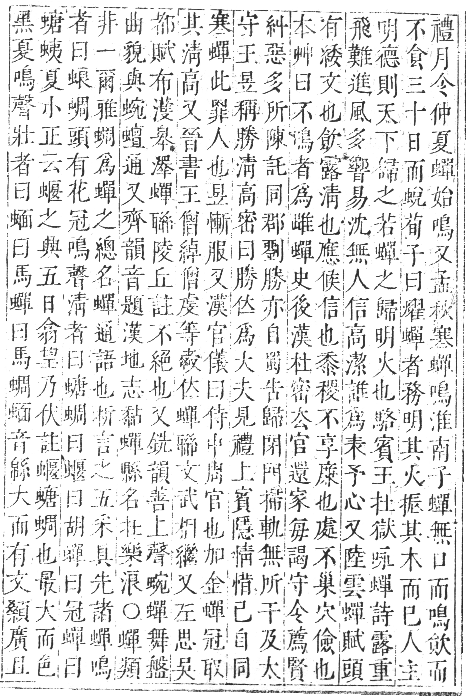 禮月令仲夏蟬始鳴又孟秋寒蟬鳴淮南子蟬無口而鳴飲而
不食三十日而蛻荀子曰耀蟬者務明其火振其木而已人主
明德則天下歸之若蟬之歸明火也駱賓王在獄咏蟬詩露重
飛難進風多響易沈無人信高潔誰爲表予心又陸雲蟬賦頭
有緌文也飮露淸也應候信也黍稷不享廉也處不巢穴儉也
本艸曰不鳴者爲雌蟬史後漢杜密去官還家每謁守令薦賢
糾惡多所陳託同郡劉勝亦自蜀告歸閉門掃軌無所干及太
守王昱稱勝淸高密曰勝位爲大夫見禮上賓隱情惜己自同
寒蟬此罪人也昱慚服又漢官儀曰侍中周官也加金蟬冠取
其淸高又晉書王僧綽僧虔等數伏蟬聯文武相繼又左思吳
都賦布濩皋澤蟬聯陵丘註不絕也又銑韻善上聲蜿蟬舞盤
曲貌與蜿蟺通又齊韻音題漢地志黏蟬縣名在樂浪〇蟬類
非一爾雅蜩爲蟬之總名蟬通語也析言之五采具先諸蟬鳴
者曰蜋蜩頭有花冠鳴聲淸者曰螗蜩曰蝘曰胡蟬曰冠蟬曰
螗蛦夏小正云蝘之興五日翕望乃伏註蝘螗蜩也最大而色
黑夏鳴聲壯者曰蝒曰馬蟬曰馬蜩蝒音緜大而有文顙廣且